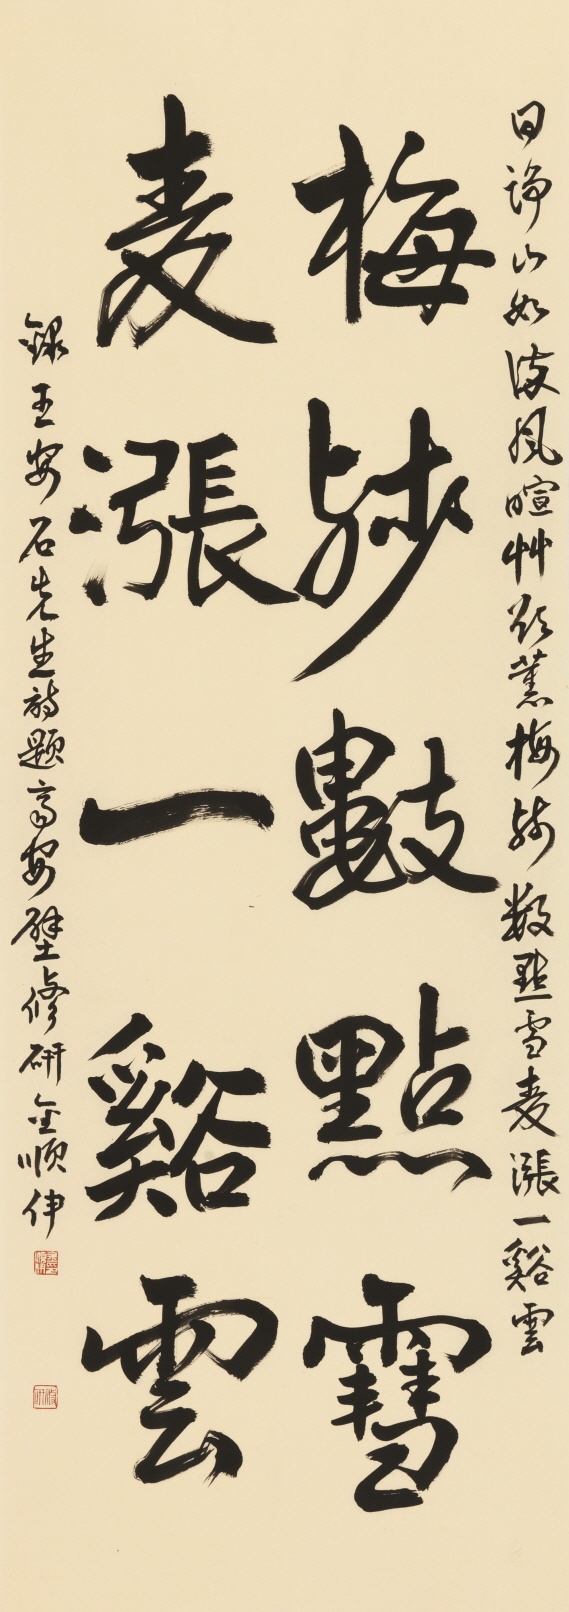 日淨山如染風暄艸欲薰梅殘数點雪麦漲一谿雲
梅殘數點雪
麦漲一谿雲
錄王安石先生詩題高安壁修研金順伸